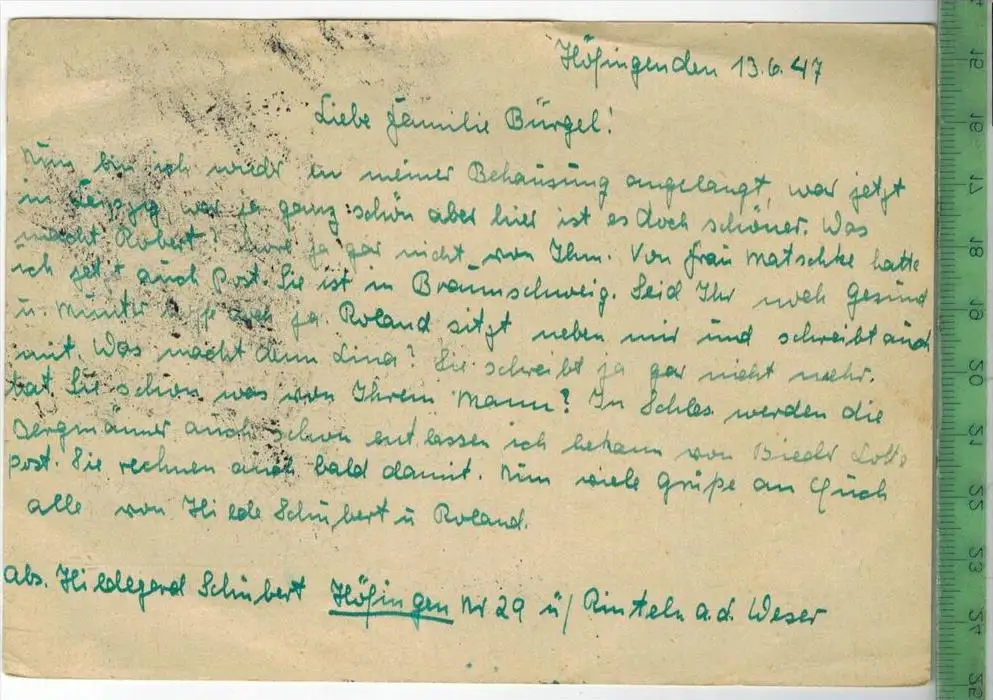 Höfingen den 13.6.47
Liebe Familie Bürgel!
Nun bin ich wieder in meiner Behausung angelangt, war jetzt
in Leipzig war ja ganz schön aber hier ist es doch schöner. Was
macht Robert? ja gar nicht von Ihm. Von Frau Matschke hatte
ich jetzt auch Post. Sie ist in Braunschweig. Seid Ihr noch Gesund
u. Munter hoffe doch ja. Roland sitzt neben mir und schreibt auch
mit. Was macht denn Lina? Sie schreibt ja gar nicht mehr.
hat Sie schon was von Ihrem Mann? In Schles. werden die
Bergmänner auch schon entlassen ich bekam von Lotte
post. Sie rechnen auch bald damit. Nun viele Grüße an Euch
alle von Hilde Schubert u Roland.
Abs. Hildegard Schubert Höfingen Nr 29 ü/ Rinteln a.d. Weser
15
16
17
18
19
20
21
22
23
24
25